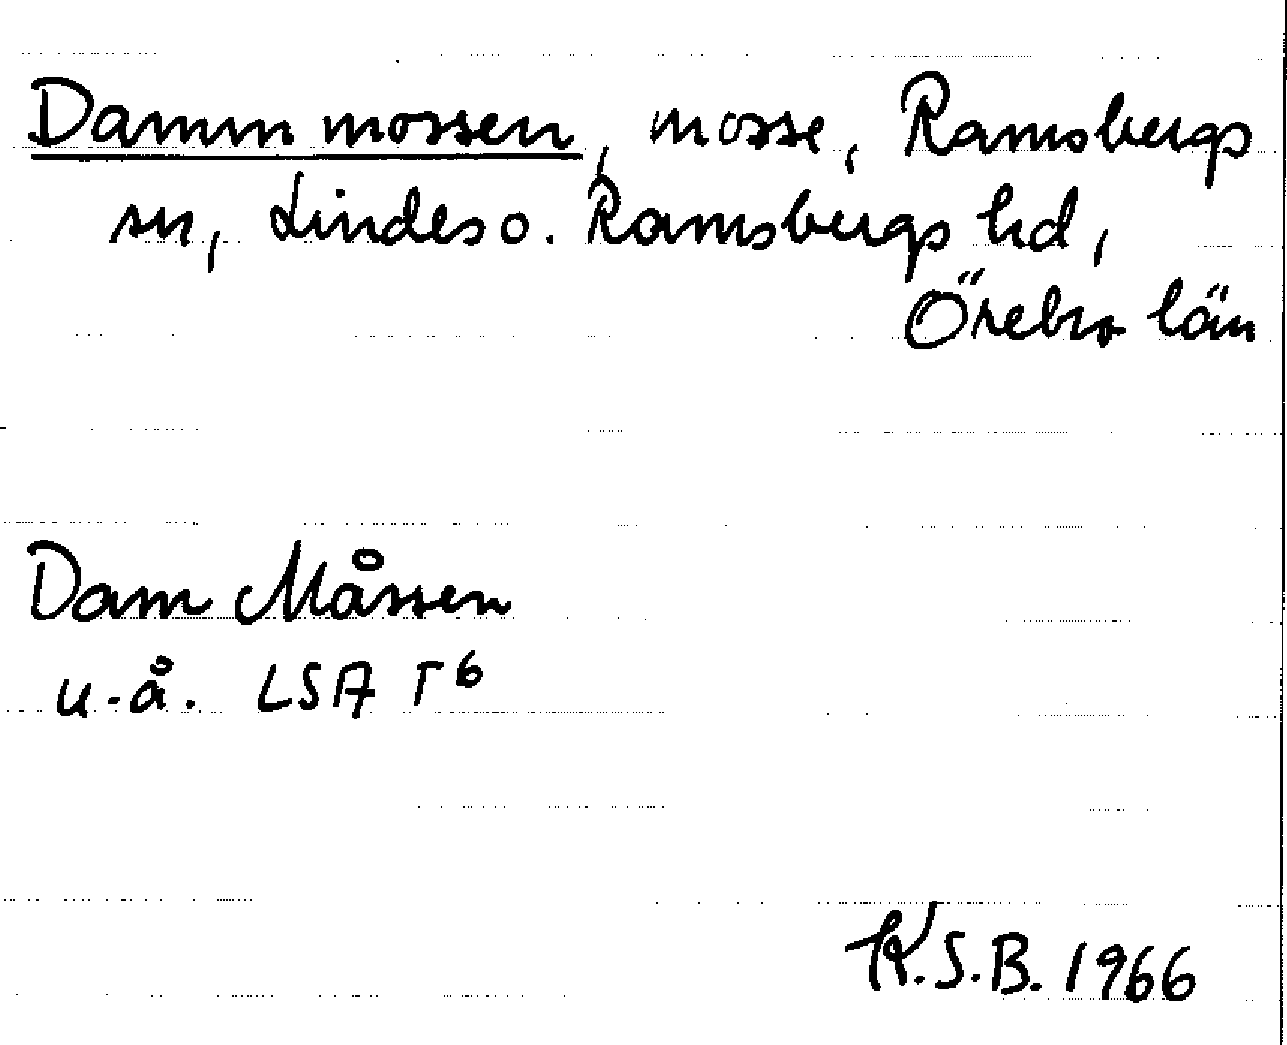 Dammmossen, mosse, Ramsbergs
sn, Lindes o. Ramsbergs hd,
Örebro län
Dam Måssen
u.å. LSA T6
K.S.B. 1966